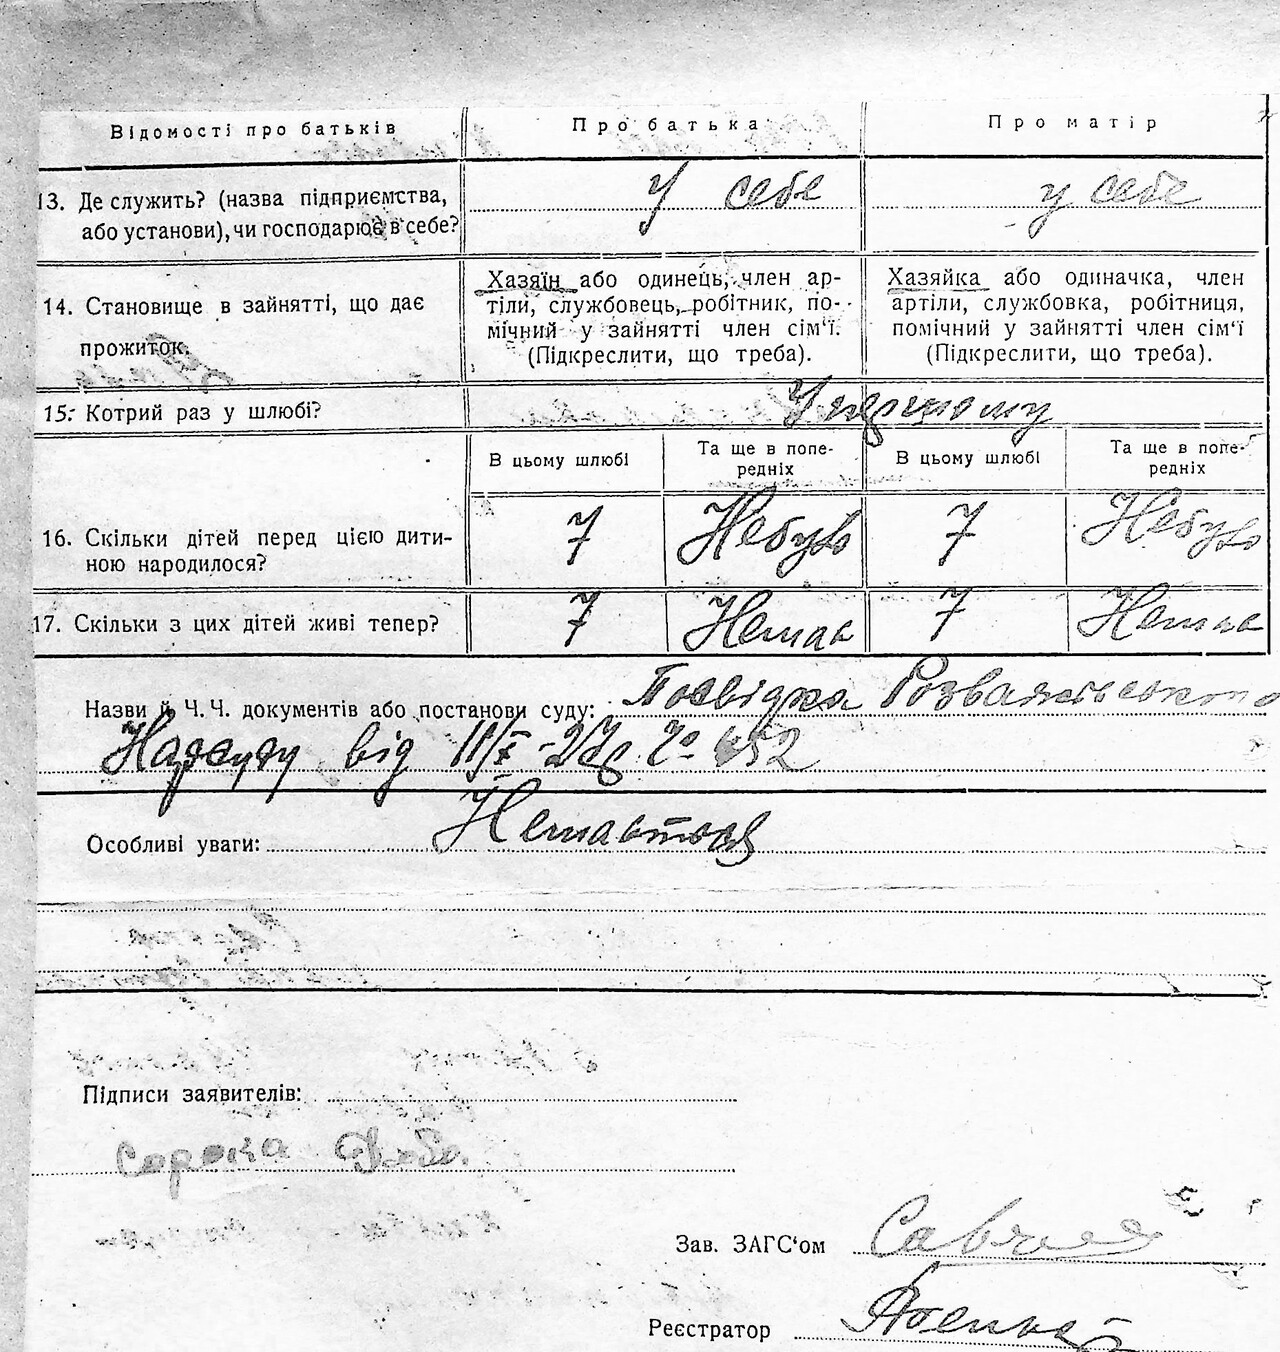 Відомості про батьків Про батька Про матір
13. Де служить? (назва підприємства, У себе у себе
або установи), чи господарює в себе?
14. Становище в зайнятті, що дає
прожиток.
Хазяїн або одинець, член ар-
тіли, службовець, робітник, по-
мічний у зайнятті член сім‘ї.
(Підкреслити, що треба).
Хазяйка або одиначка, член
артіли, службовка, робітниця,
помічний у зайнятті член сім‘ї
(Підкреслити, що треба).
15. Котрий раз у шлюбі? У первому
В цьому шлюбі Та ще в попе-
редніх В цьому шлюбі Та ще в попе-
редніх
16. Скільки дітей перед цією дити-
ною народилося? 7 Небуло 7 Небуло
17. Скільки з цих дітей живі тепер? 7 Немає 7 Немає
Назви й Ч.Ч. документів або постанови суду: Посвідка Розважівського
Нарсуду від
Особливі уваги:
Підписи заявителів:
Сорока
Зав. ЗАГС‘ом
Реєстратор